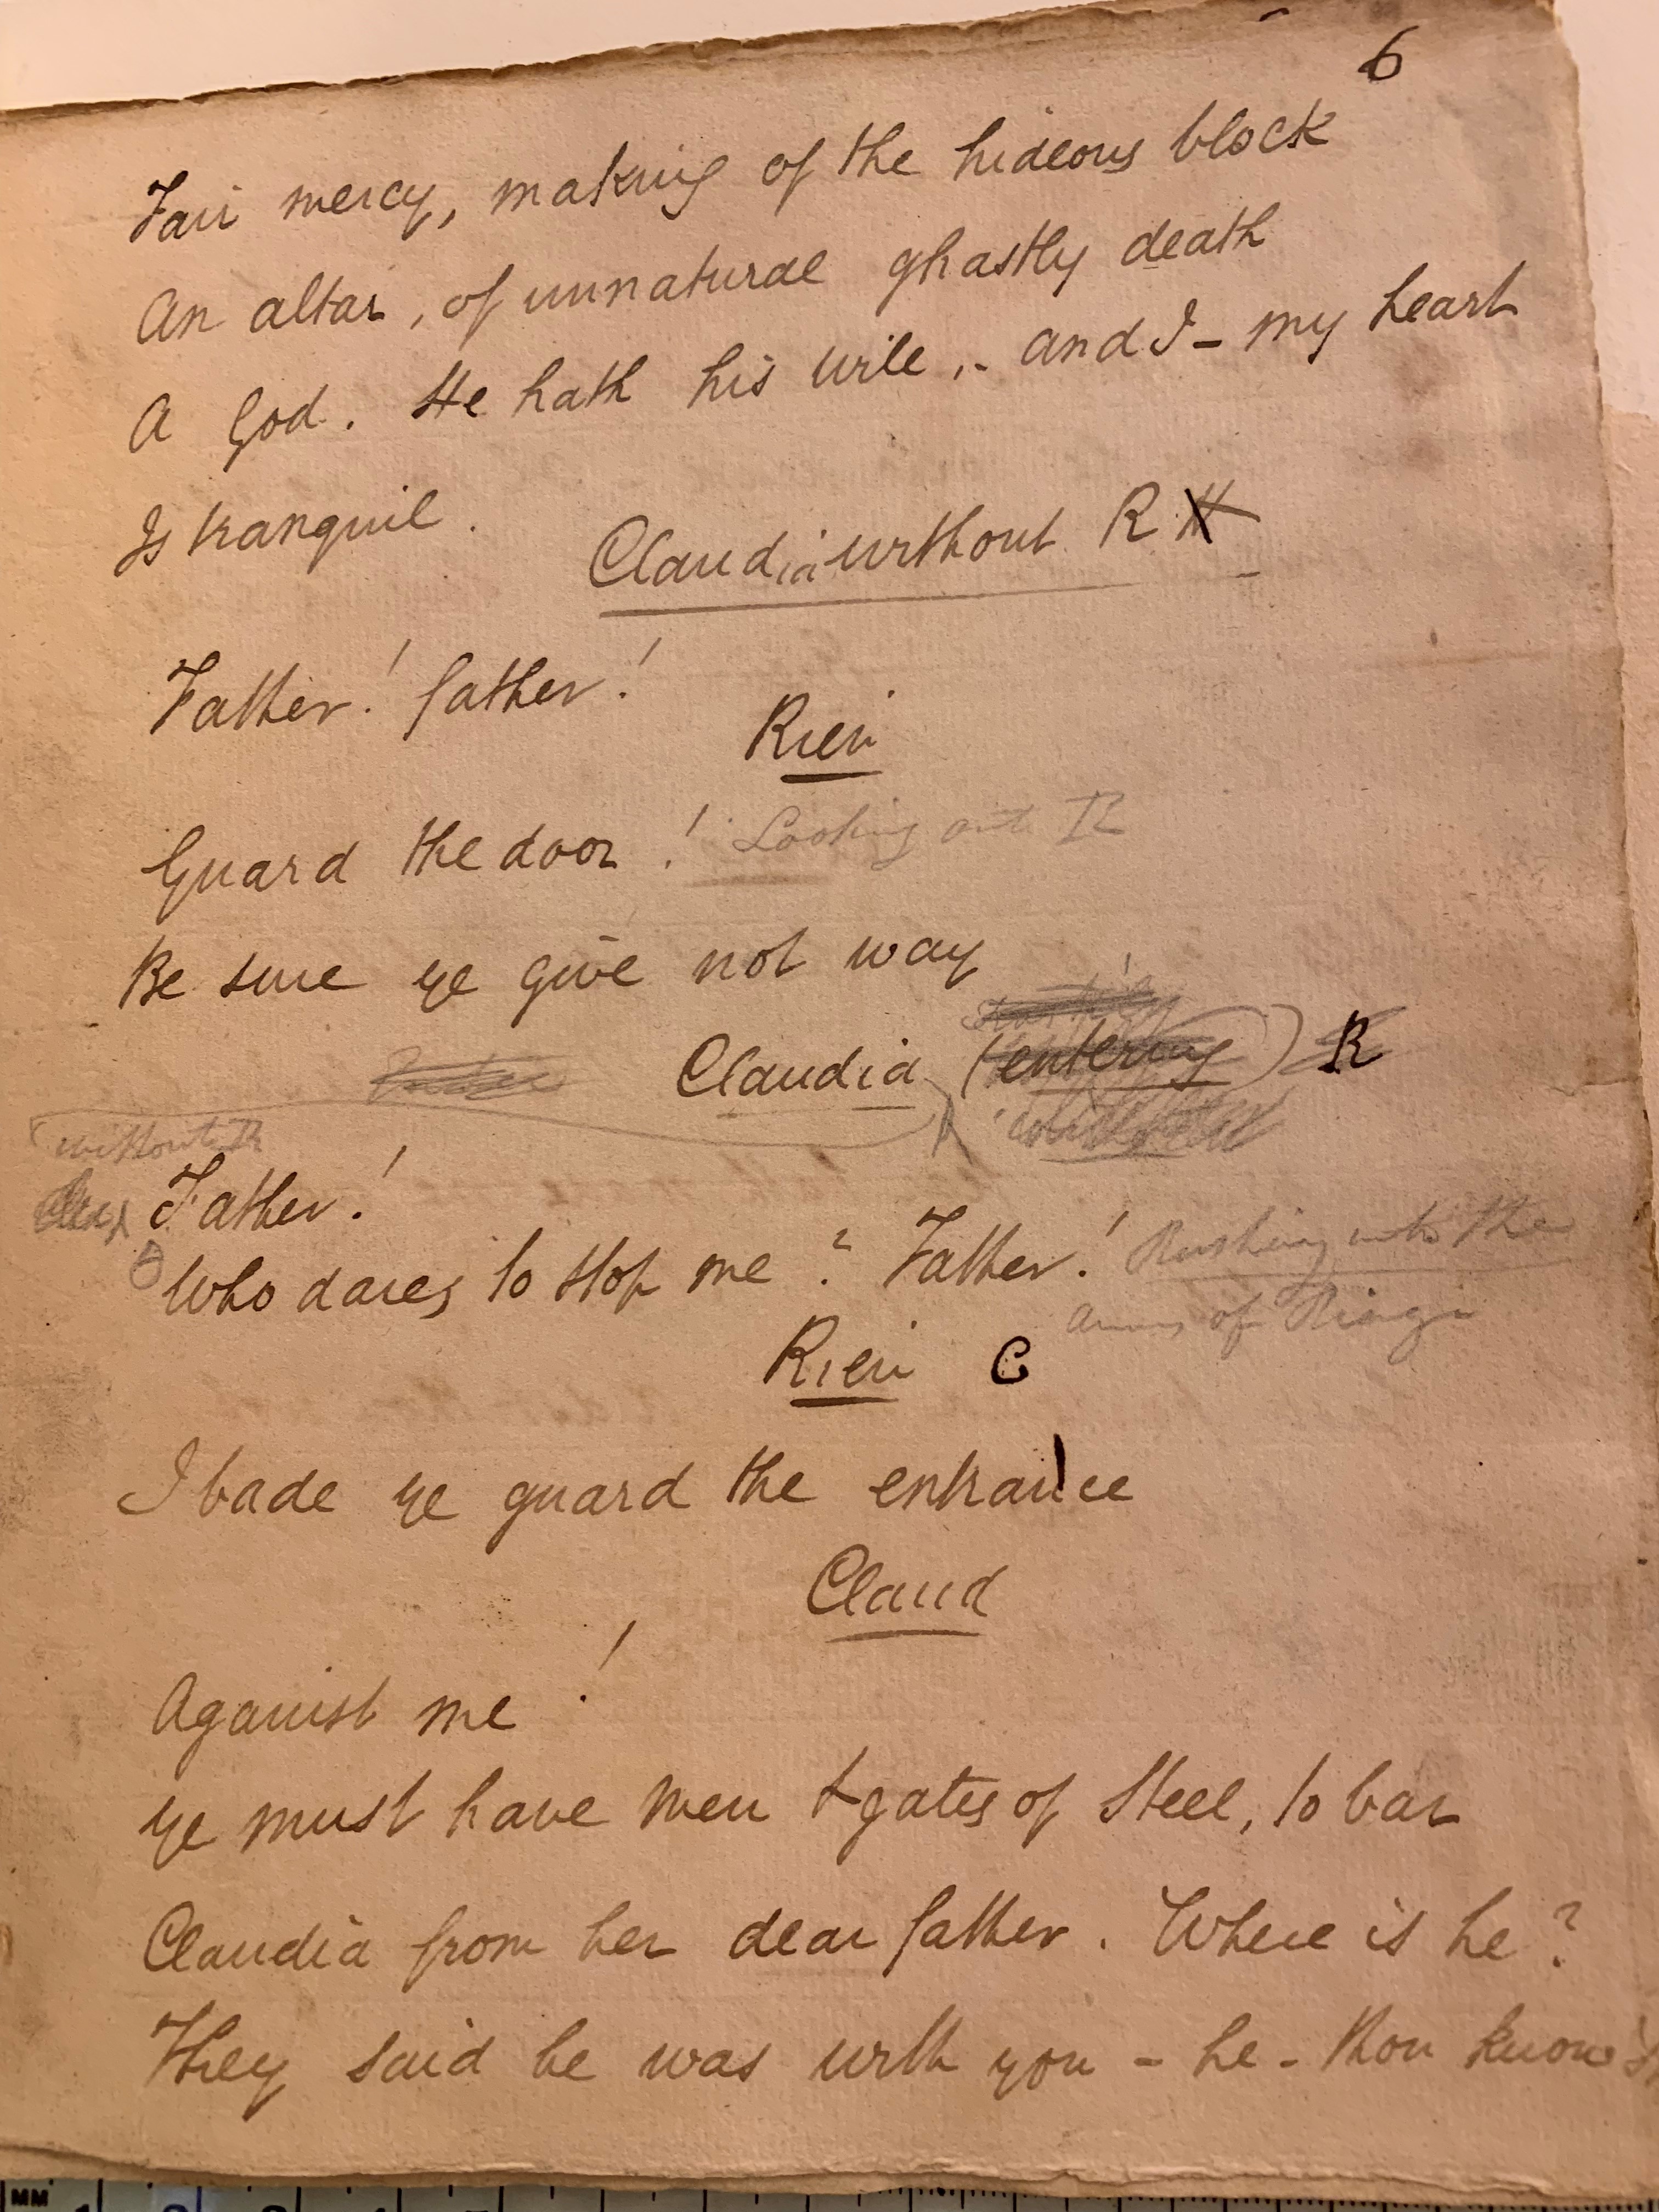 6
Fair mercy, making of the hideous block
An altar, of unnatural ghastly death
A God. He hath his will, - and I - my heart
Is tranquil.
Claudia without R
Father! father!
Rien
Guard the door! Looking out R
Be sure ye give not way
Claudia (entering) R
without R
Father!
Who dares to stop me? Father! Rushing into the
arms of
Rien C
I bade ye guard the entrance
Claud
Against me!
Ye must have men & gates of Steel, to bar
Claudia from her dear father. Where is he?
They said he was with you - he - thou know'st